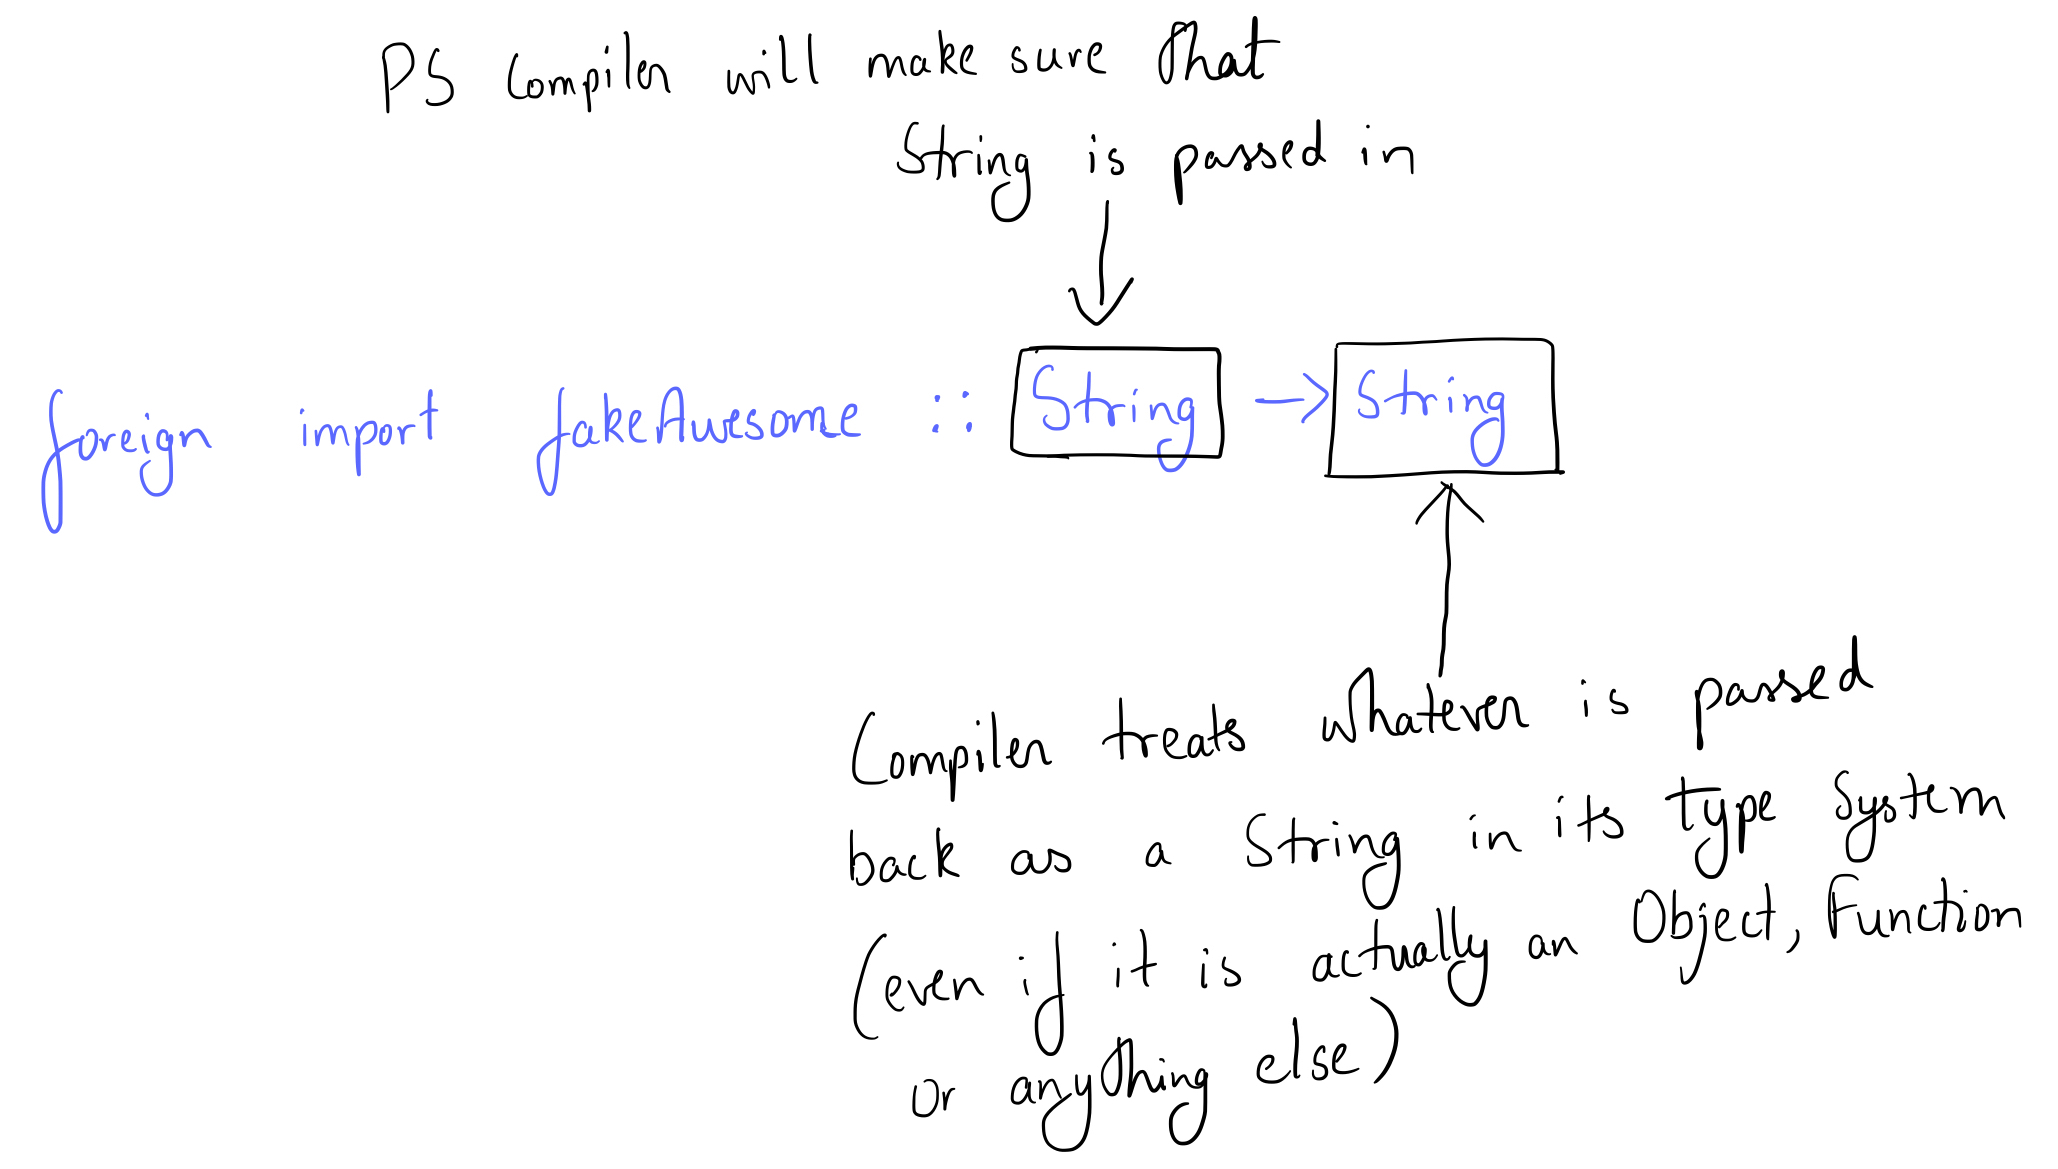 PS Compiler will make sure that
String is passed in
foreign import fakeAwesome :: String → String
Compiler treats whatever is passed
back as a String in its type System
(even if it is actually an Object, Function
or anything else)